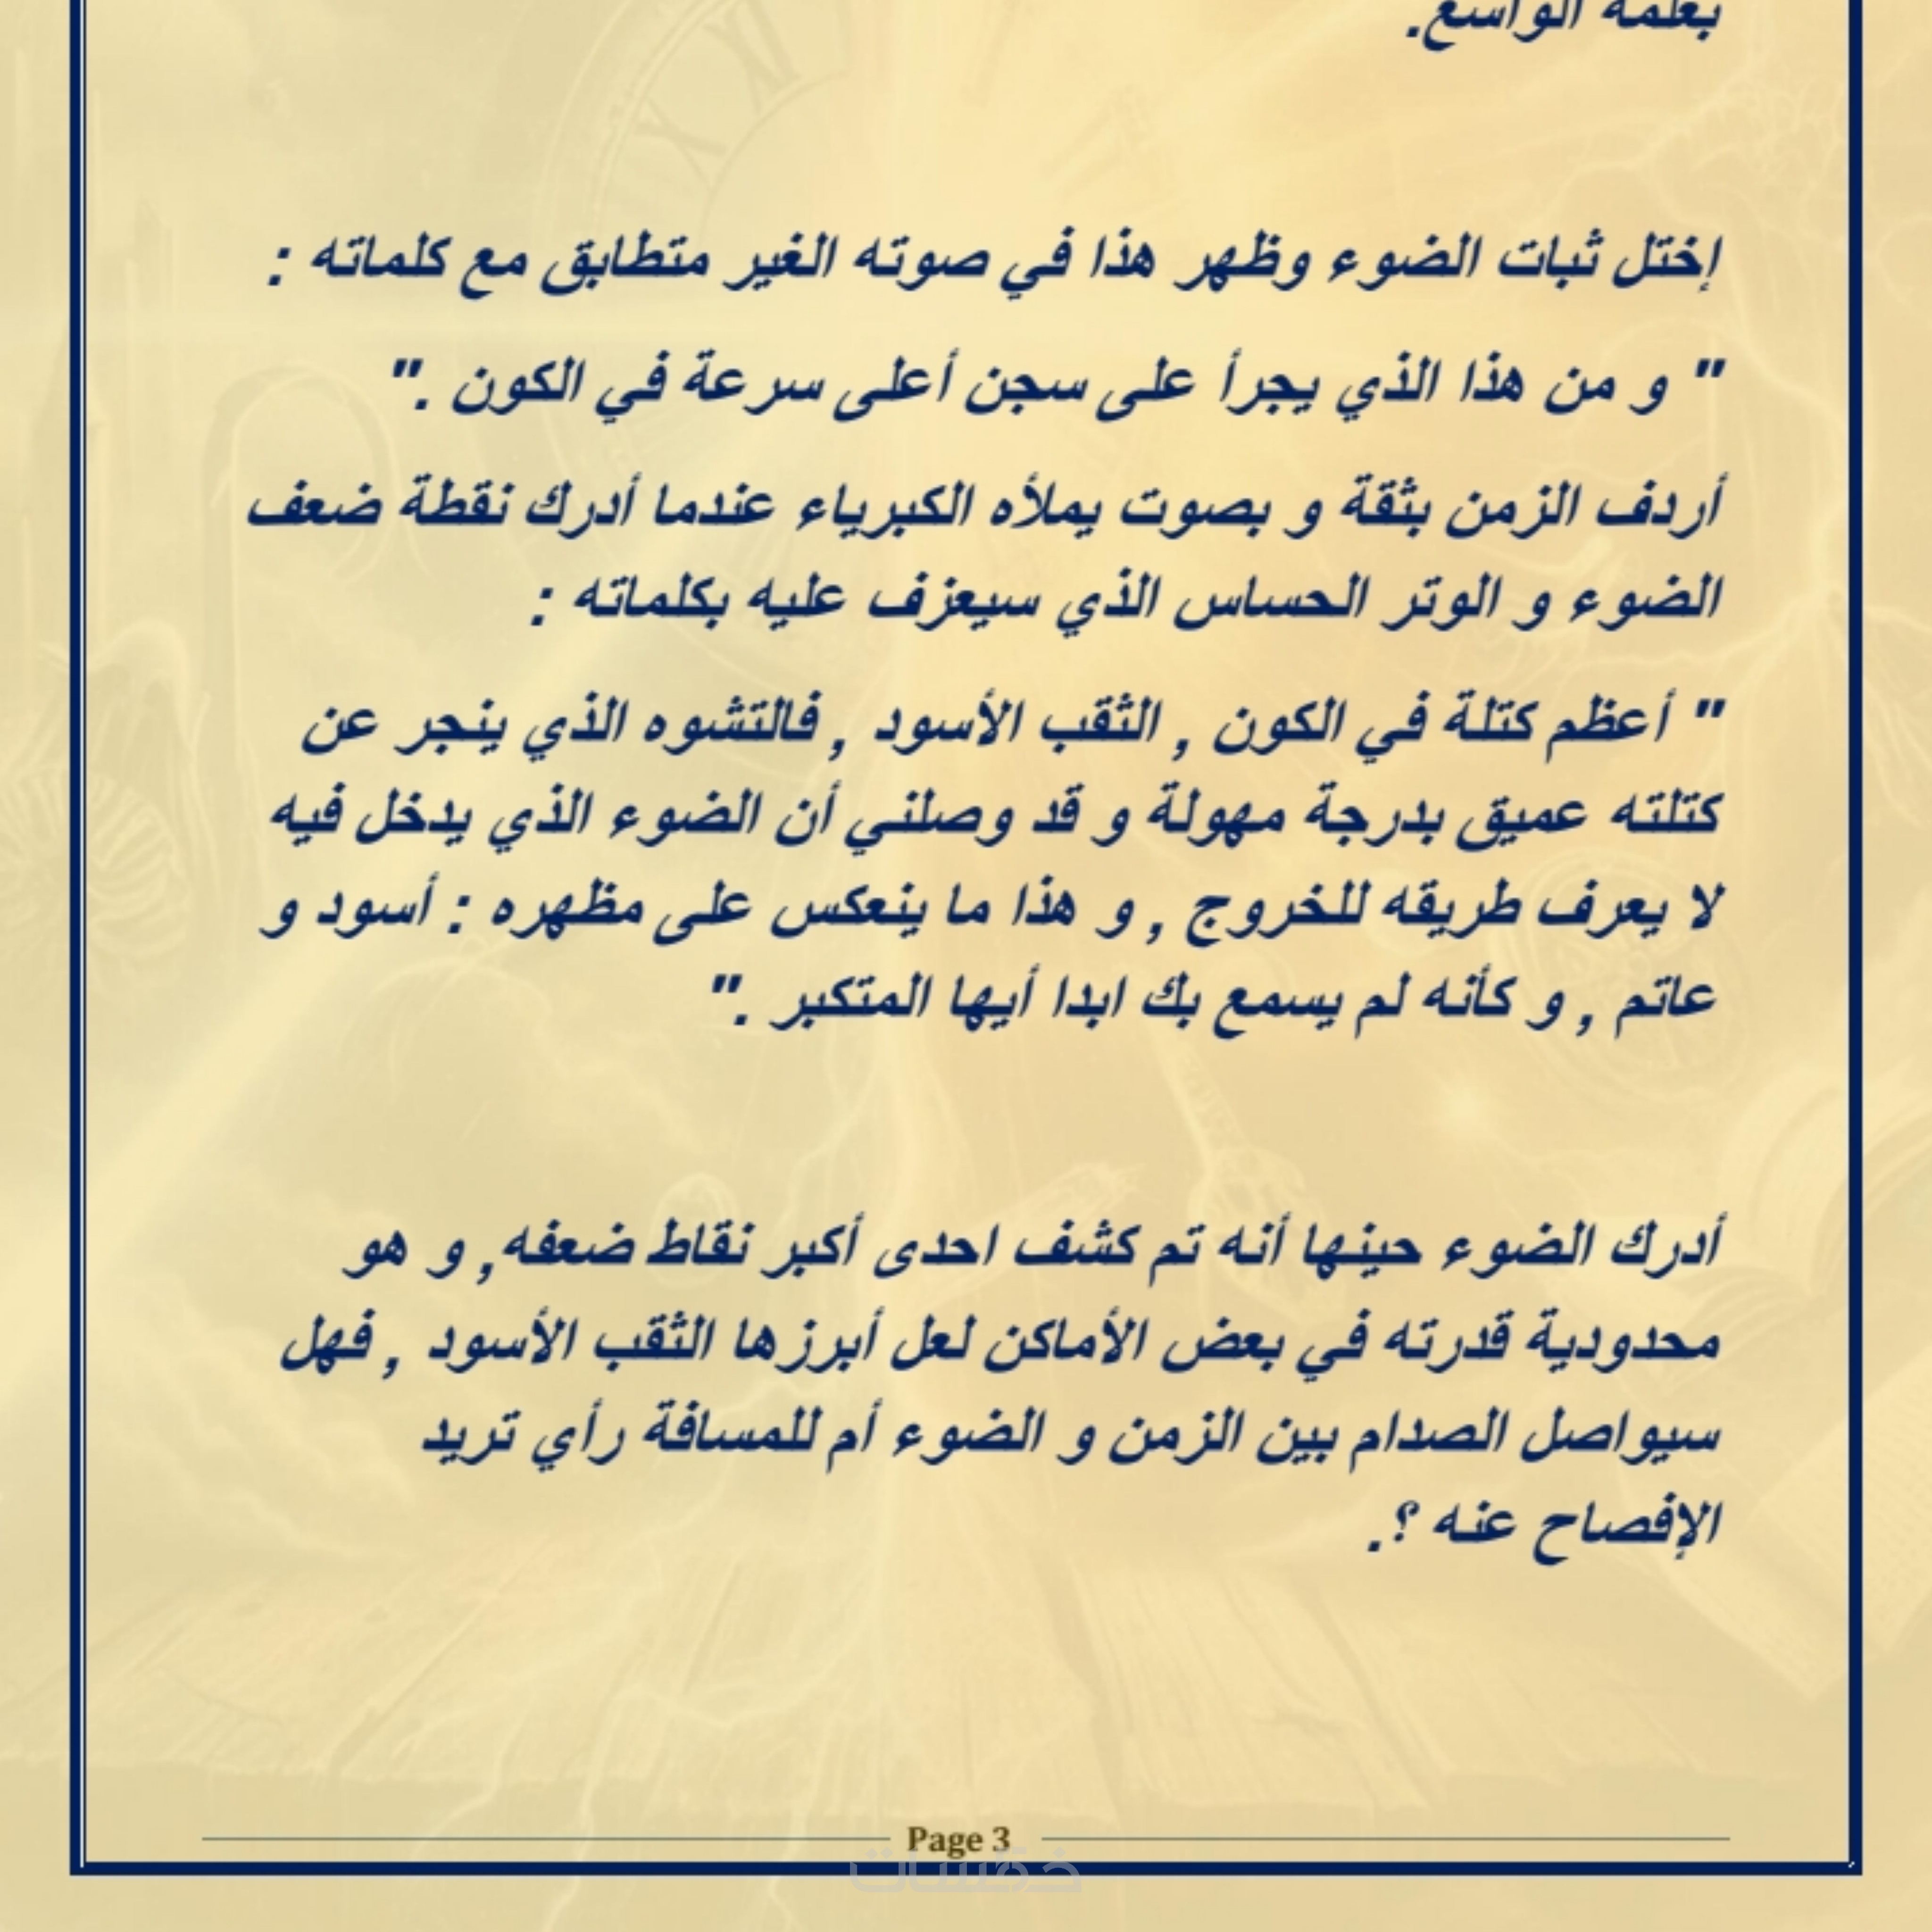 بعلمه الواسع.
إختل ثبات الضوء وظهر هذا في صوته الغير متطابق مع كلماته :
" و من هذا الذي يجرأ على سجن أعلى سرعة في الكون ."
أردف الزمن بثقة و بصوت يملأه الكبرياء عندما أدرك نقطة ضعف
الضوء و الوتر الحساس الذي سيعزف عليه بكلماته :
" أعظم كتلة في الكون , الثقب الأسود , فالتشوه الذي ينجر عن
كتلته عميق بدرجة مهولة و قد وصلني أن الضوء الذي يدخل فيه
لا يعرف طريقه للخروج , و هذا ما ينعكس على مظهره : أسود و
عاتم , و كأنه لم يسمع بك ابدا أيها المتكبر ."
أدرك الضوء حينها أنه تم كشف احدى أكبر نقاط ضعفه, و هو
محدودية قدرته في بعض الأماكن لعل أبرزها الثقب الأسود , فهل
سيواصل الصدام بين الزمن و الضوء أم للمسافة رأي تريد
الإفصاح عنه ؟.
Page 3
خمسات